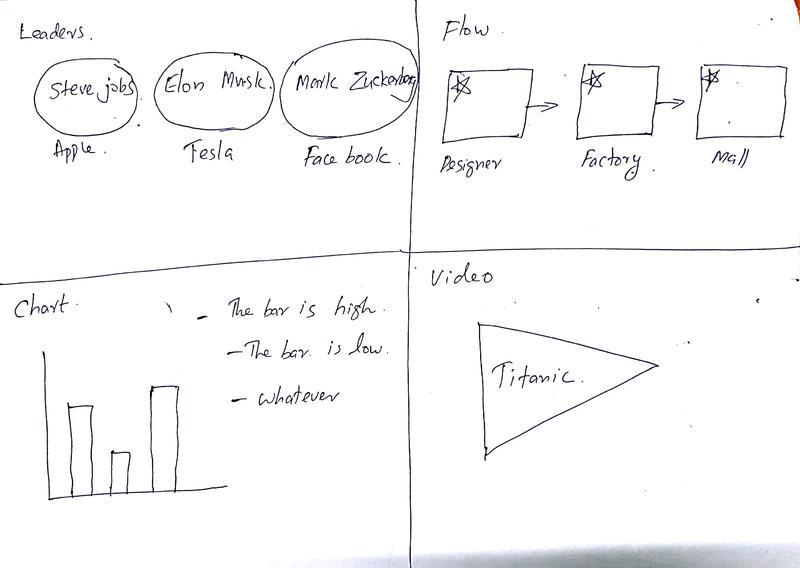 Leaders.
Steve jobs
Elon Musk.
Mark Zuckerberg
Apple.
Tesla
Face book.
Flow
Designer
Factory.
Mall
Chart.
- The bar is high.
- The bar is low.
- whatever
Video
Titanic.